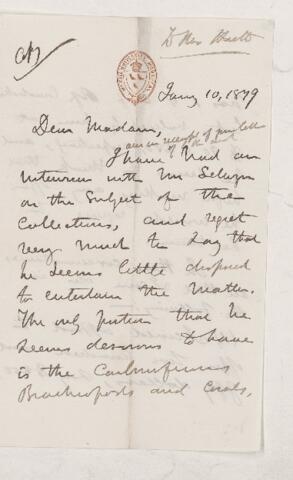 To Mrs
Jany 10, 1879
Dear Madam,
am in receipt of your letter
I have had an
interview with Mr Selwyn
on the subject of the
collections, and regret
very much to say that
he seems little disposed
to entertain the matter.
The only portion that he
seems desirous to have
is the Carboniferous
Brachiopods and Corals,